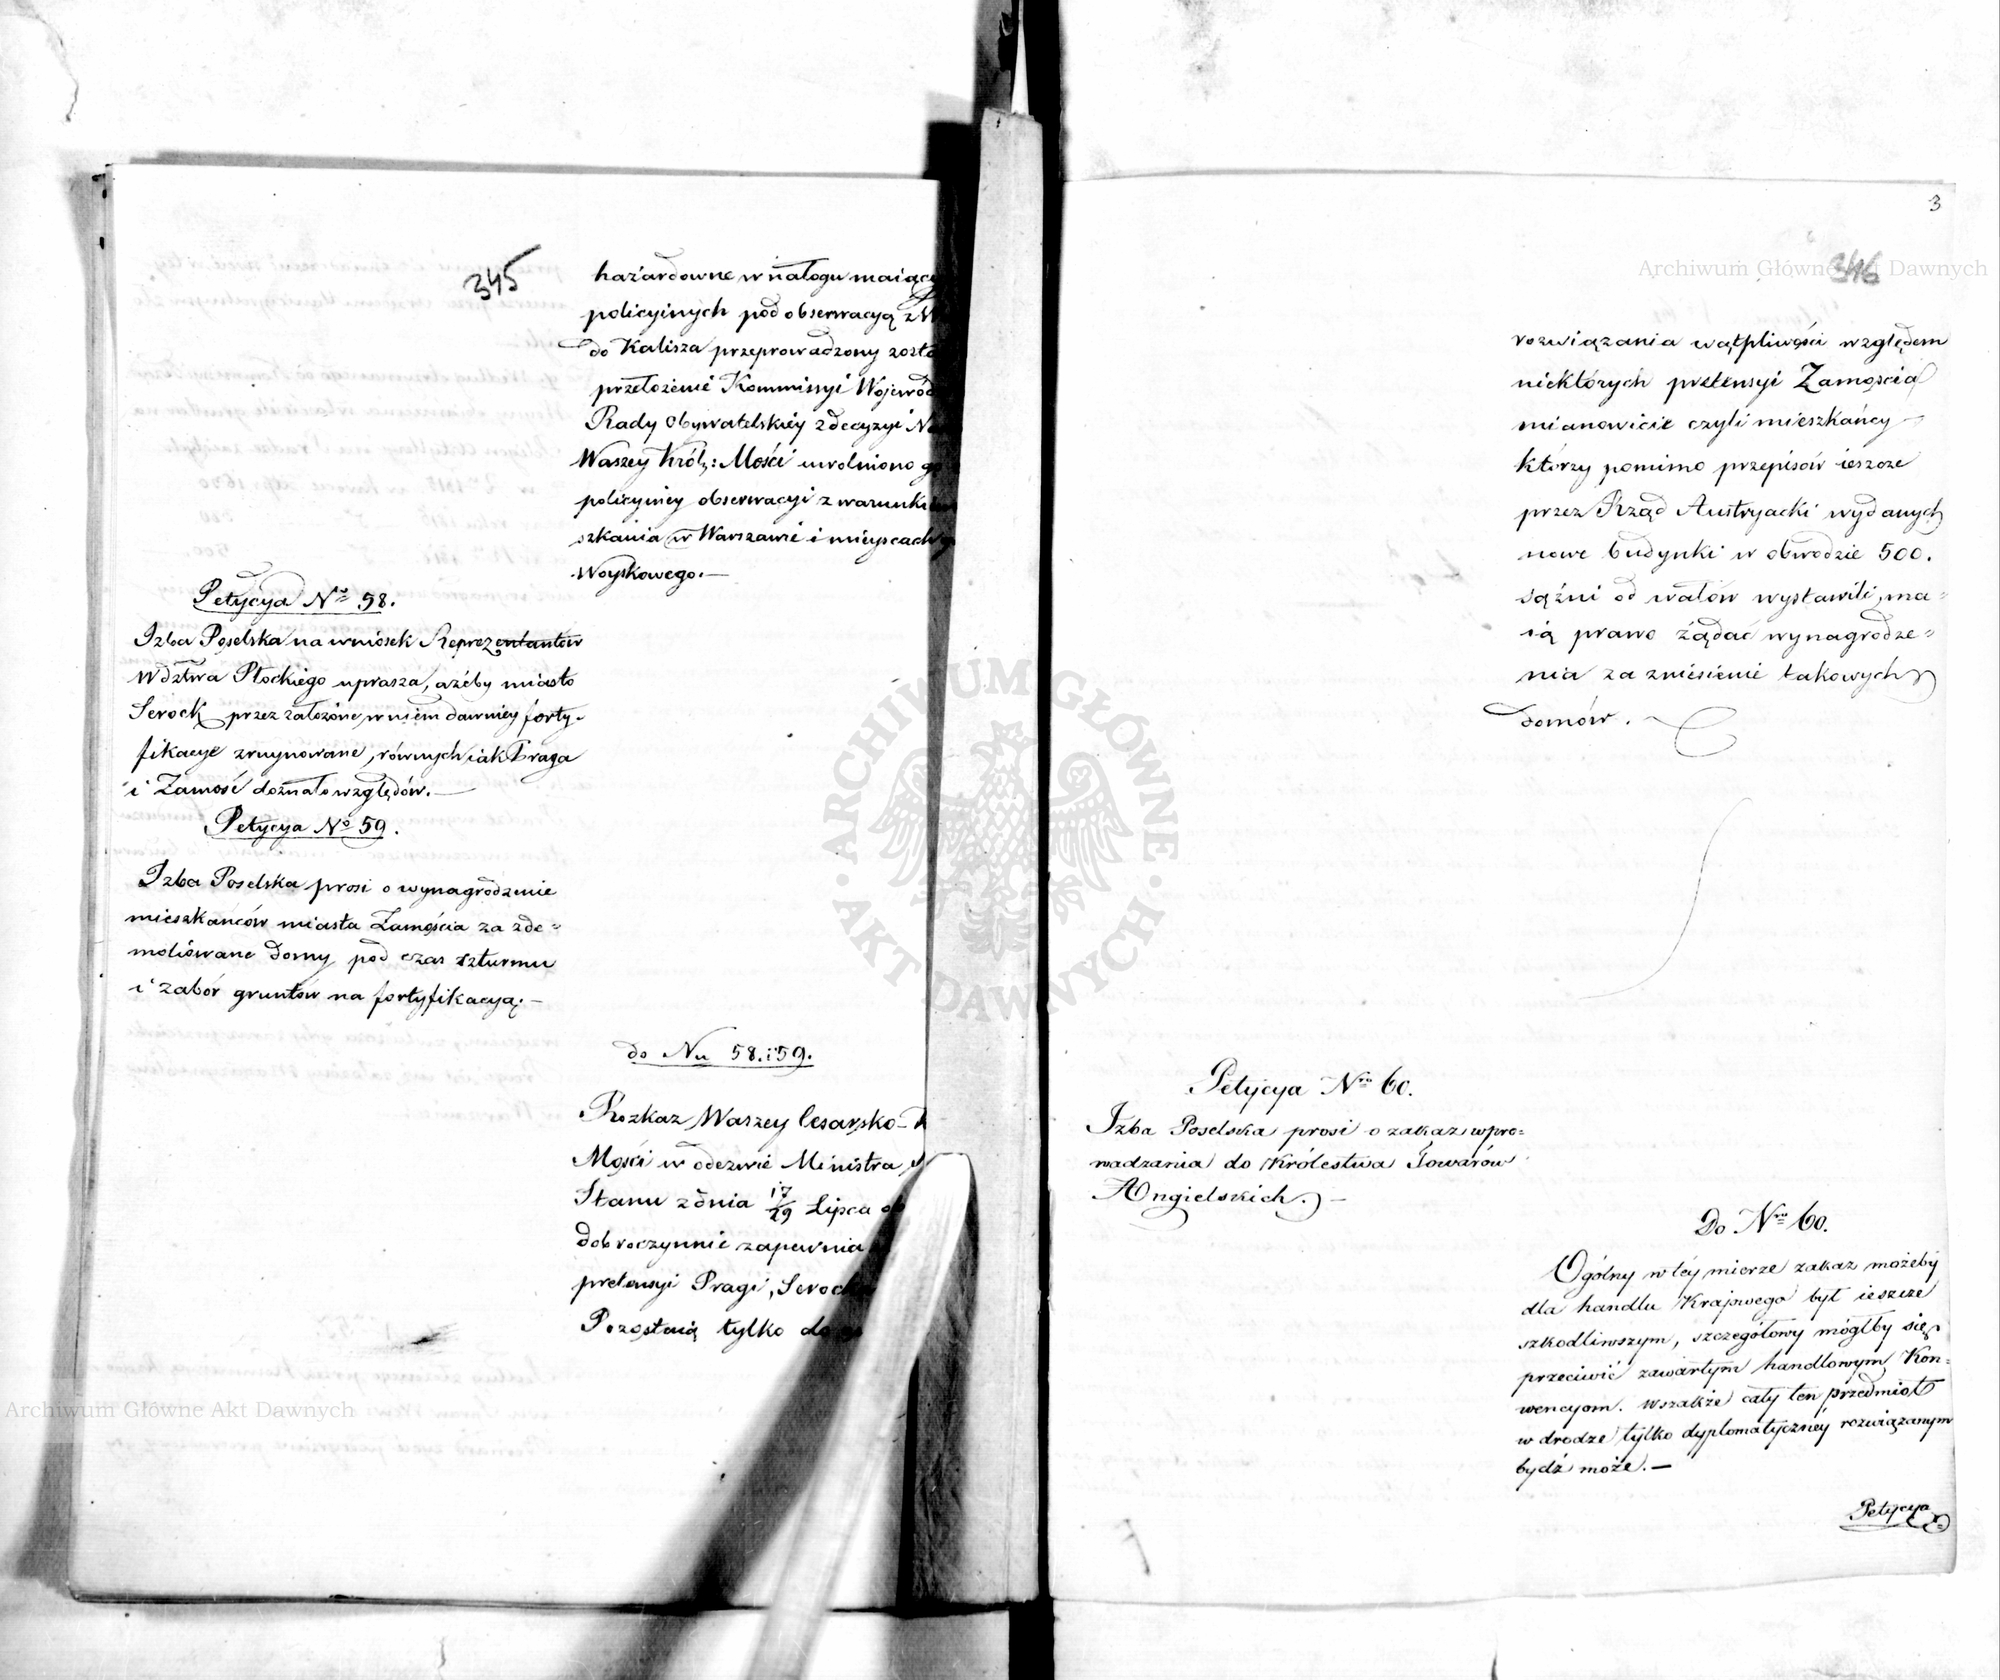 345
hazardowne w nałogu maiący
policyinych pod obserwacyą z W
do Kalisza przeprowadzony zosta
przełożenie Kommissyi Wojewód
Rady Obywatelskiéy z decyzyi N
Waszey Król: Mości uwolniono go
policyiney obserwacyi z warunki
szkania w Warszawie i mieyscach
Woyskowego.—
Petycya Nro 58.
Izba Poselska na wniosek Reprezentantów
Wdztwa Płockiego uprasza, ażeby miasto
Serock przez założone w niem dawniey forty-
fikacye zruynowane, równych iak Praga
i Zamość doznało względów.—
Petycya No 59.
Izba Poselska prosi o wynagrodzenie
mieszkańców miasta Zamościa za zde=
moliowane domy pod czas szturmu
i zabór gruntów na fortyfikacyą.—
do Nu 58. i 59.
Rozkaz Waszey Cesarsko-K
Mości w odezwie Ministra S
Stanu z dnia 17/29 Lipca
dobroczynnie zapewnia
pretensyi Pragi, Serocka
Pozostaią tylko do
3
346
rozwiązania wątpliwości względem
niektórych pretensyi Zamościa
mianowicie czyli mieszkańcy
którzy pomimo przepisów ieszcze
przez Rząd Austryacki wydanych
nowe budynki w obwodzie 500.
sążni od wałów wystawili, ma=
ią prawo żądać wynagrodze=
nia za zniesienie takowych
domów.
Petycya Nro 60.
Izba Poselska prosi o zakaz wpro=
wadzania do Królestwa Towarów
Angielskich.—
Do Nro 60.
Ogólny w téy mierze zakaz możeby
dla handlu Krajowego był ieszcze
szkodliwszym, szczegółowy mógłby się
przeciwić zawartym handlowym Kon=
wencyom. Wszakże cały ten przedmiot
w drodze tylko dyplomatycznéy rozwiązanym
bydź może.—
Petycya
Archiwum Główne Akt Dawnych
ARCHIWUM GŁÓWNE · AKT DAWNYCH ·
Archiwum Główne Akt Dawnych